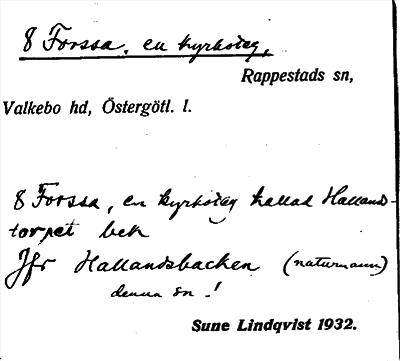 8 Forssa, en kyrkoteg,
Rappestads sn,
Valkebo hd, Östergötl. l.
8 Forssa, en kyrkoteg kallad Halland-
torpet bek
Jfr Hallandsbacken (naturnamn)
denna sn!
Sune Lindqvist 1932.